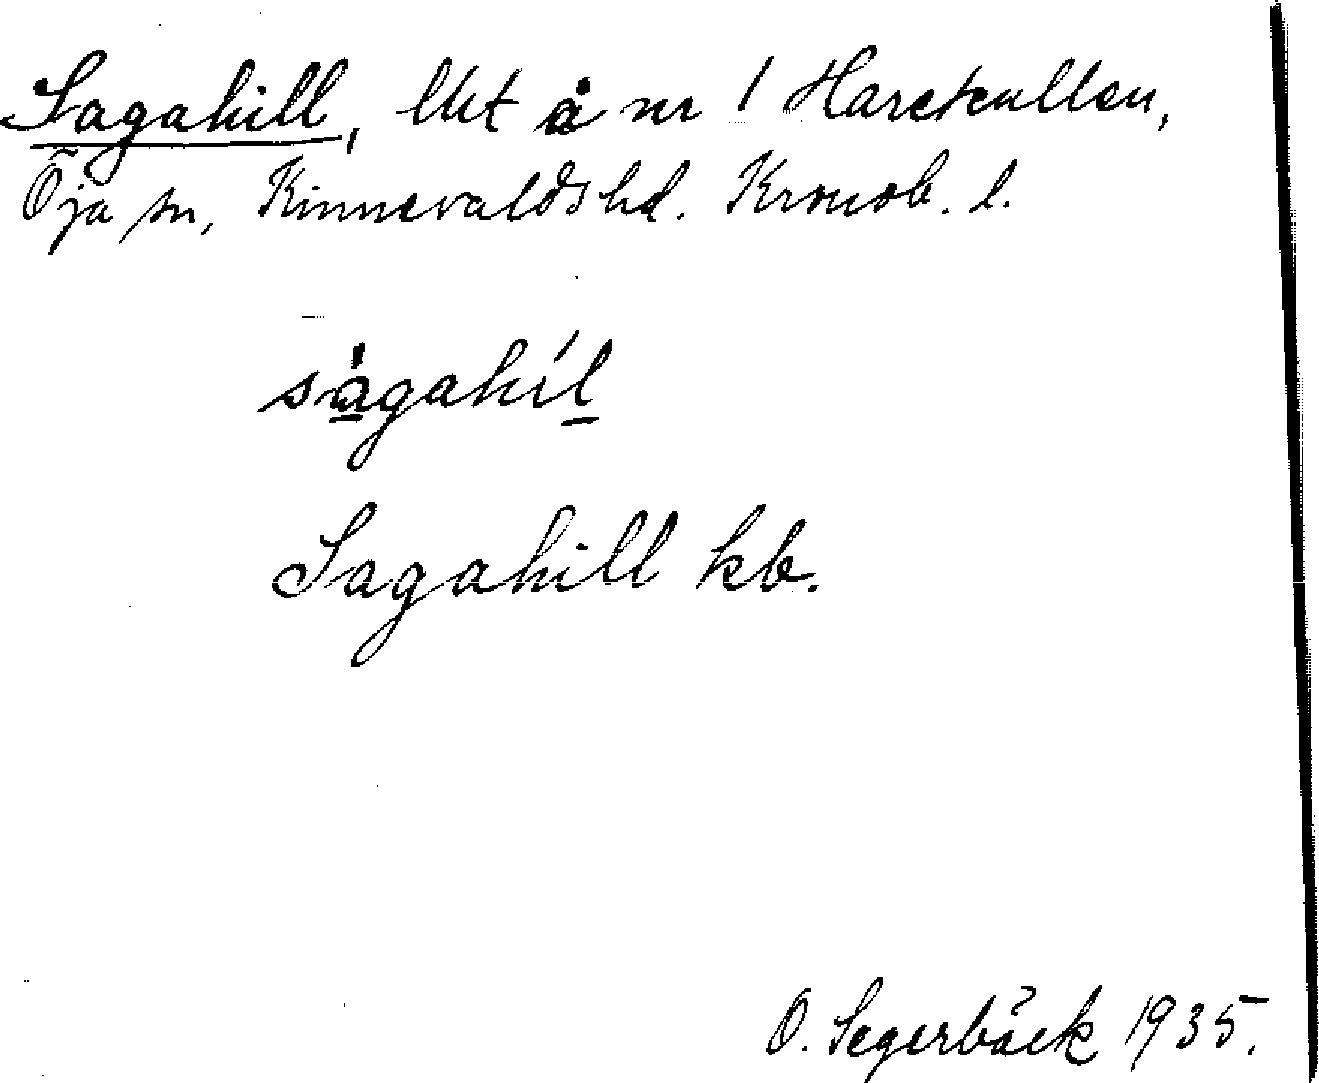 Sagahill, lht å nr 1 Harekullen,
Öja sn, Kinnevalds hd. Kronob. l.
sàgahíl
Sagahill kb.
O. Segerbäck 1935.